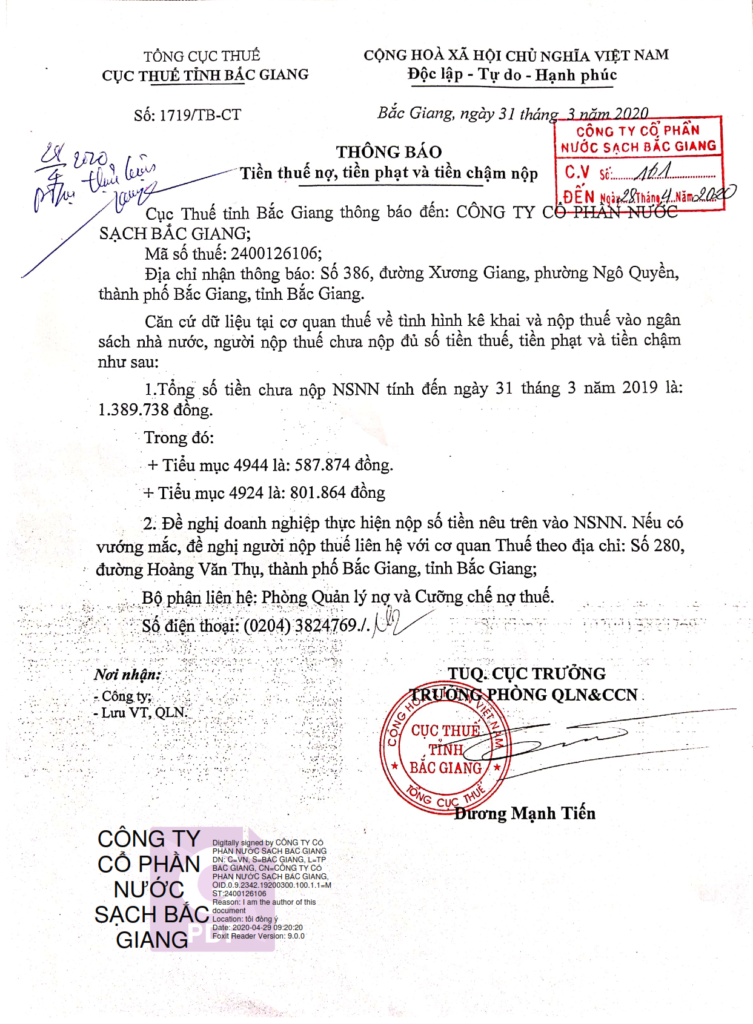 TỔNG CỤC THUẾ
CỤC THUẾ TỈNH BẮC GIANG
CỘNG HOÀ XÃ HỘI CHỦ NGHĨA VIỆT NAM
Độc lập - Tự do - Hạnh phúc
Số: 1719/TB-CT
Bắc Giang, ngày 31 tháng 3 năm 2020
CÔNG TY CỔ PHẦN
NƯỚC SẠCH BẮC GIANG
C.V Số: 161
ĐẾN Ngày 28 Tháng 4 Năm 2020
28/4 2020
THÔNG BÁO
Tiền thuế nợ, tiền phạt và tiền chậm nộp
Cục Thuế tỉnh Bắc Giang thông báo đến: CÔNG TY CỔ PHẦN NƯỚC
SẠCH BẮC GIANG;
Mã số thuế: 2400126106;
Địa chỉ nhận thông báo: Số 386, đường Xương Giang, phường Ngô Quyền,
thành phố Bắc Giang, tỉnh Bắc Giang.
Căn cứ dữ liệu tại cơ quan thuế về tình hình kê khai và nộp thuế vào ngân
sách nhà nước, người nộp thuế chưa nộp đủ số tiền thuế, tiền phạt và tiền chậm
như sau:
1.Tổng số tiền chưa nộp NSNN tính đến ngày 31 tháng 3 năm 2019 là:
1.389.738 đồng.
Trong đó:
+ Tiểu mục 4944 là: 587.874 đồng.
+ Tiểu mục 4924 là: 801.864 đồng
2. Đề nghị doanh nghiệp thực hiện nộp số tiền nêu trên vào NSNN. Nếu có
vướng mắc, đề nghị người nộp thuế liên hệ với cơ quan Thuế theo địa chỉ: Số 280,
đường Hoàng Văn Thụ, thành phố Bắc Giang, tỉnh Bắc Giang;
Bộ phận liên hệ: Phòng Quản lý nợ và Cưỡng chế nợ thuế.
Số điện thoại: (0204) 3824769./.
Nơi nhận:
- Công ty;
- Lưu VT, QLN.
TUQ. CỤC TRƯỞNG
TRƯỞNG PHÒNG QLN&CCN
CỘNG HOÀ VIỆT NAM
CỤC THUẾ
TỈNH
BẮC GIANG
TỔNG CỤC THUẾ
Dương Mạnh Tiến
CÔNG TY
CỔ PHẦN
NƯỚC
SẠCH BẮC
GIANG
Digitally signed by CÔNG TY CỔ
PHẦN NƯỚC SẠCH BẮC GIANG
DN: C=VN, S=BẮC GIANG, L=TP
BẮC GIANG, CN=CÔNG TY CỔ
PHẦN NƯỚC SẠCH BẮC GIANG,
OID.0.9.2342.19200300.100.1.1=M
ST:2400126106
Reason: I am the author of this
document
Location: tôi đồng ý
Date: 2020-04-29 09:20:20
Foxit Reader Version: 9.0.0
PDF